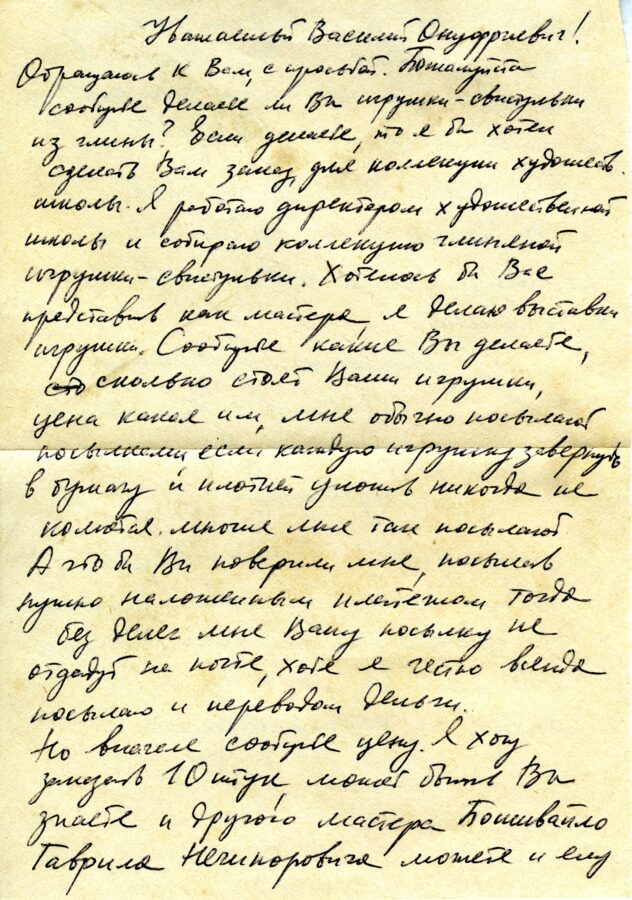 Уважаемый Василий Онуфриевич!
Обращаюсь к Вам, с просьбой. Пожалуйста
сообщите делаете ли Вы игрушки-свистульки
из глины? Если делаете, то я бы хотел
сделать Вам заказ, для коллекции художеств.
школы. Я работаю директором художественной
школы и собираю коллекцию глиняной
игрушки-свистульки. Хотелось бы Вас
представить как мастера, я делаю выставки
игрушки. Сообщите какие Вы делаете,
сколько стоят Ваши игрушки,
цена какая им, мне обычно посылают
посылками если каждую игрушку завернуть
в бумагу и плотней уложить никогда не
колются. многие мне так посылают
А что бы Вы поверили мне, посылать
нужно наложенным платежом тогда
без денег мне Вашу посылку не
отдадут на почте, хотя я честно всегда
посылаю и переводом деньги.
Но вначале сообщите цену. Я хочу
заказать 10 штук, может быть Вы
знаете и другого мастера Пошивайло
Гаврила Нечипоровича можете и ему